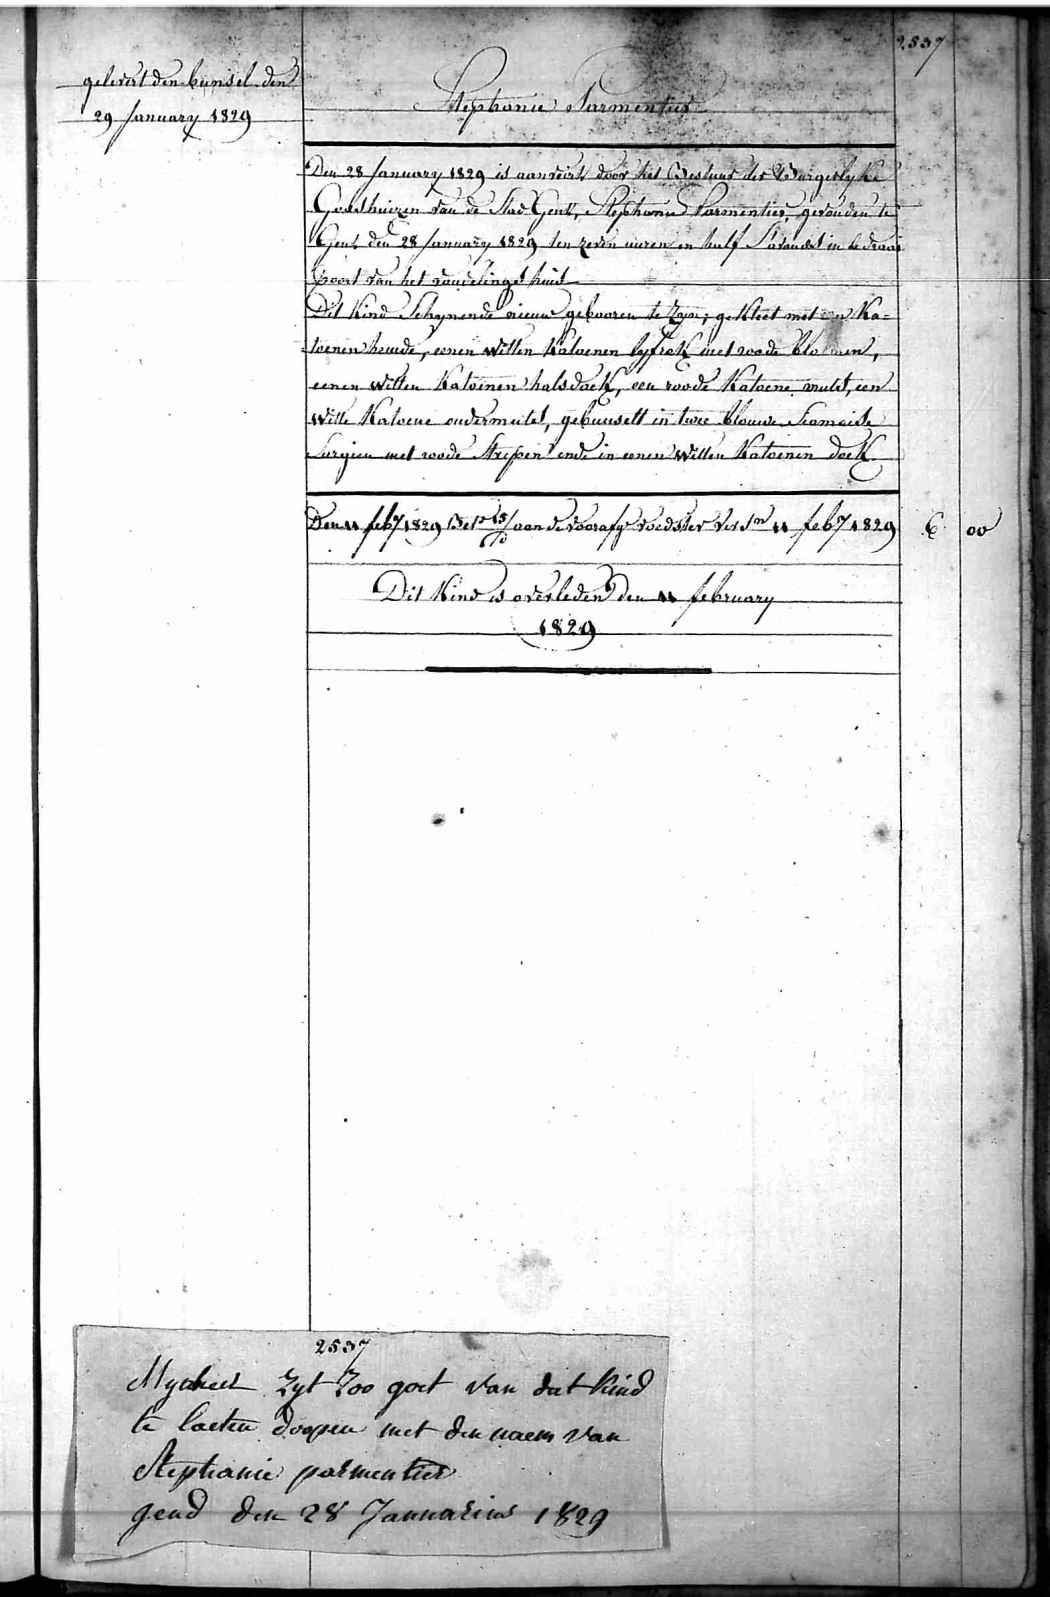 2537
gelevert den bunsel den
29 January 1829
Stephanie Parmentier
Den 28 January 1829 is aanveirt door het Bestuur der Burgerlyke
Godshuizen van de Stad Gent, Stephanie Parmentier, gevonden te
Gent den 28 January 1829 ten zeven uuren en half s'avonds in de draai
poort van het vondelingshuis
Dit Kind Schynende nieuw gebooren te Zyn; gekleet met een Ka=
toenen hemde, eenen Witten Katoenen lyfrok met roode blommen,
eenen Witten Katoinen halsdoek, een roode Katoene muts, een
Witte Katoene ondermuts, gebunselt in twee blouwe Siamoise
Sargien met roode Strepen ende in eenen Witten Katoinen doek
Den 11 feby 1829 Bet aan de voorafg voedster vers 11 feby 1829 6 00
Dit Kind is overleden den 11 february
1829
2537
Mynheer Zyt Zoo goet van dat kind
te laeten doopen met den naem van
Stephanie parmentier
gend den 28 Januarius 1829